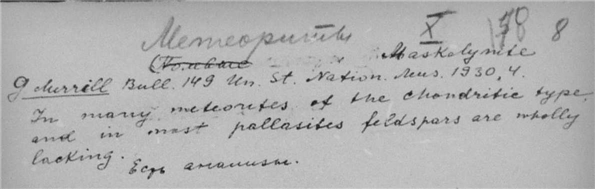 Метеориты X 8
Maskelynite
G Merrill Bull. 149 Un. St. Nation. Mus. 1930, 4.
In many meteorites of the chondritic type,
and in most pallasites feldspars are wholly
lacking.
Есть анализы.